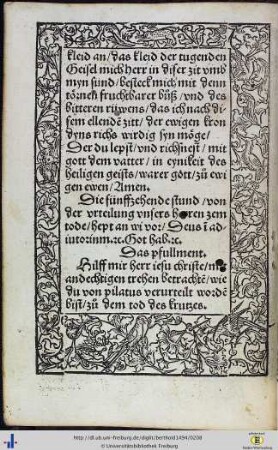 kleid an/das kleid der tugenden
Geisel mich herr in diser zit vmb
myn sund/besteck mich mit denn
törnen fruchtbarer bůß/vnd des
bitteren rüwens/das ich nach di
sem ellendē zitt/der ewigen kron
dyns richs wirdig syn möge/
Der du lepst/vnd richsnest/mit
gott dem vatter/in eynikeit des
heiligen geists/warer gott/zů ew
igen ewen/Amen.
Die fünffzehende stund/von
der vrteilung vnsers herren zem
tode/hept an wi vor/Deus ī ad-
iutorium.⁊c. Got hab.⁊c.
Das pfullment.
Hilff mir herr iesu christe/
andechtigen trehen betrachtē/wie
du von pilatus verurteilt wordē
bist/zů dem tod des krutzes.
http://dl.ub.uni-freiburg.de/diglit/berthold1494/0208
© Universitätsbibliothek Freiburg